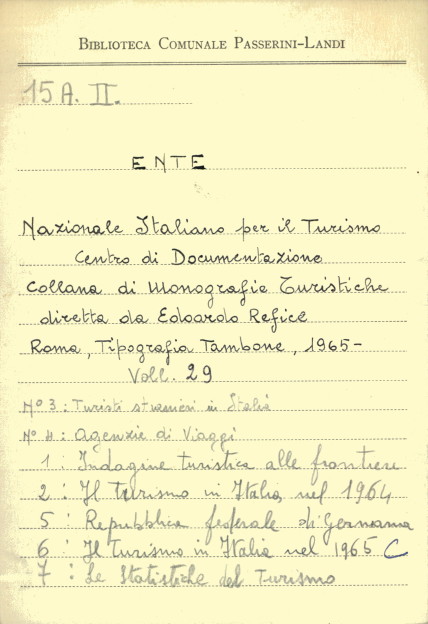 BIBLIOTECA COMUNALE PASSERINI-LANDI
15 A. II.
ENTE
Nazionale Italiano per il Turismo
Centro di Documentazione
Collana di Monografie Turistiche
diretta da Edoardo Refice
Roma, Tipografia Tambone, 1965-
Voll. 29
Nº 3 : Turisti stranieri in Italia
Nº 4 : Agenzie di Viaggi
1 : Indagine turistica alle frontiere
2 : Il turismo in Italia nel 1964
5 : Repubblica federale di Germania
6 : Il Turismo in Italia nel 1965 C
7 : Le Statistiche del Turismo